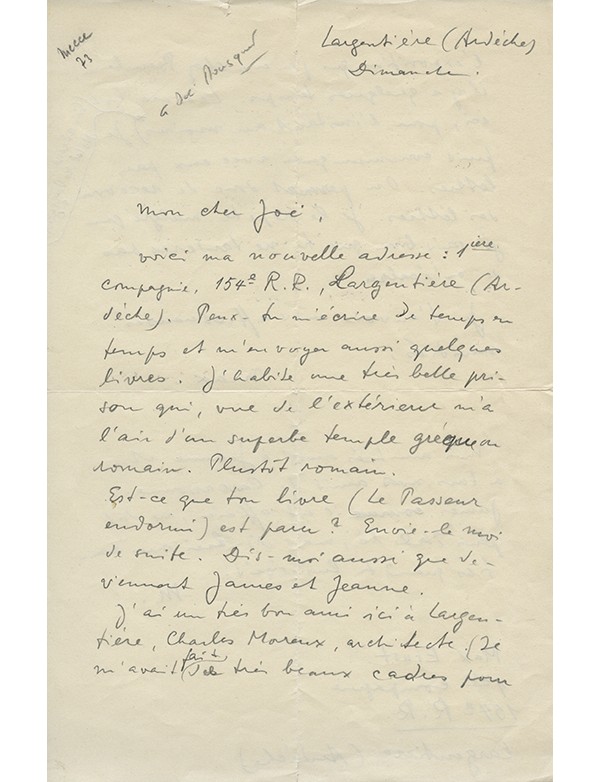 Largentière (Ardèche)
Dimanche.
73
à Joë Bousquet
Mon cher Joë,
voici ma nouvelle adresse : 1ière
compagnie, 154e R.R., Largentière (Ar-
dèche). Peux-tu m'écrire de temps en
temps et m'envoyer aussi quelques
livres. J'habite une très belle pri-
son qui, vue de l'extérieur m'a
l'air d'un superbe temple gréque ou
romain. Plustôt romain.
Est-ce que ton livre (Le Passeur
endormi) est paru ? Envoie-le moi
de suite. Dis-moi aussi que de-
viennent James et Jeanne.
J'ai un très bon ami ici à Largen-
tière, Charles Moreux, architecte. (Je
m'avait fait de très beaux cadres pour